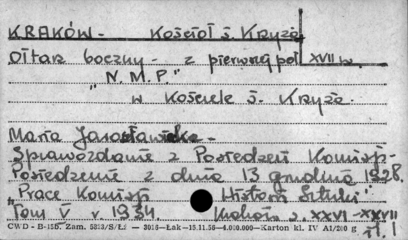 KRAKÓW - Kościół ś. Kryża
Ołtarz boczny - z pierwszej poł. XVII w.
"N. M. P."
w Kościele ś. Kryża.
Maria Jarosławiecka -
Sprawozdanie z Posiedzeń Komisji -
Posiedzenie z dnia 13 grudnia 1928.
"Prace Komisji Historii Sztuki"
Tom V r. 1934. Kraków s. XXVI-XXVII
CWD - B-156. Zam. 5313/S/Łi — 3013—Łak—15.11.55—4.000.000—Karton kl. IV A1/200 g